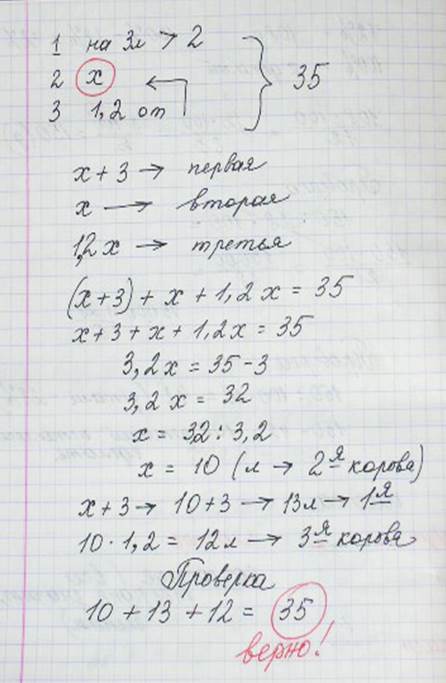 1 на 3л > 2
2 x
3 1,2 от
35
x + 3 → первая
x → вторая
1,2x → третья
(x+3) + x + 1,2x = 35
x + 3 + x + 1,2x = 35
3,2x = 35 - 3
3,2x = 32
x = 32 : 3,2
x = 10 (л → 2я корова)
x + 3 → 10 + 3 → 13л → 1я
10 · 1,2 = 12л → 3я корова
Проверка
10 + 13 + 12 = 35
верно!